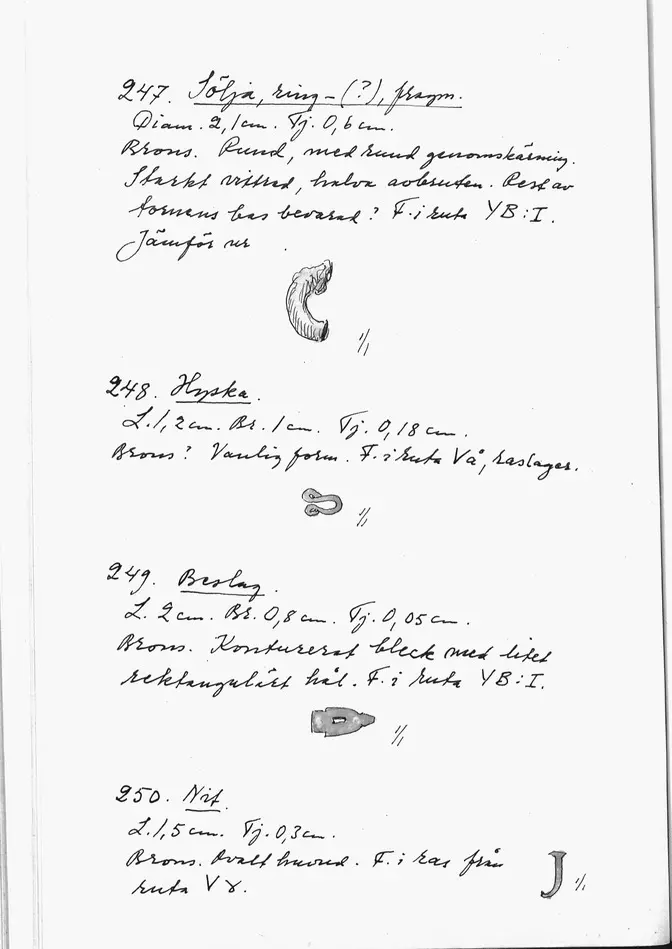 247. Sölja, ring-(?), fragm.
Diam. 2,1 cm. Tj. 0,6 cm.
Brons. Rund, med rund genomskärning.
Starkt vittrad, halva avbruten. Rest av
tornens bas bevarad? F. i ruta YB:I.
Jämför nr
1/1
248. Hyska.
L. 1,2 cm. Br. 1 cm. Tj. 0,18 cm.
Brons? Vanlig form. F. i ruta Vå, raslager.
1/1
249. Beslag.
L. 2 cm. Br. 0,8 cm. Tj. 0,05 cm.
Brons. Konturerat bleck med litet
rektangulärt hål. F. i ruta YB:I.
1/1
250. Nit.
L. 1,5 cm. Tj. 0,3 cm.
Brons. Ovalt huvud. F. i ras från
ruta V
1/1